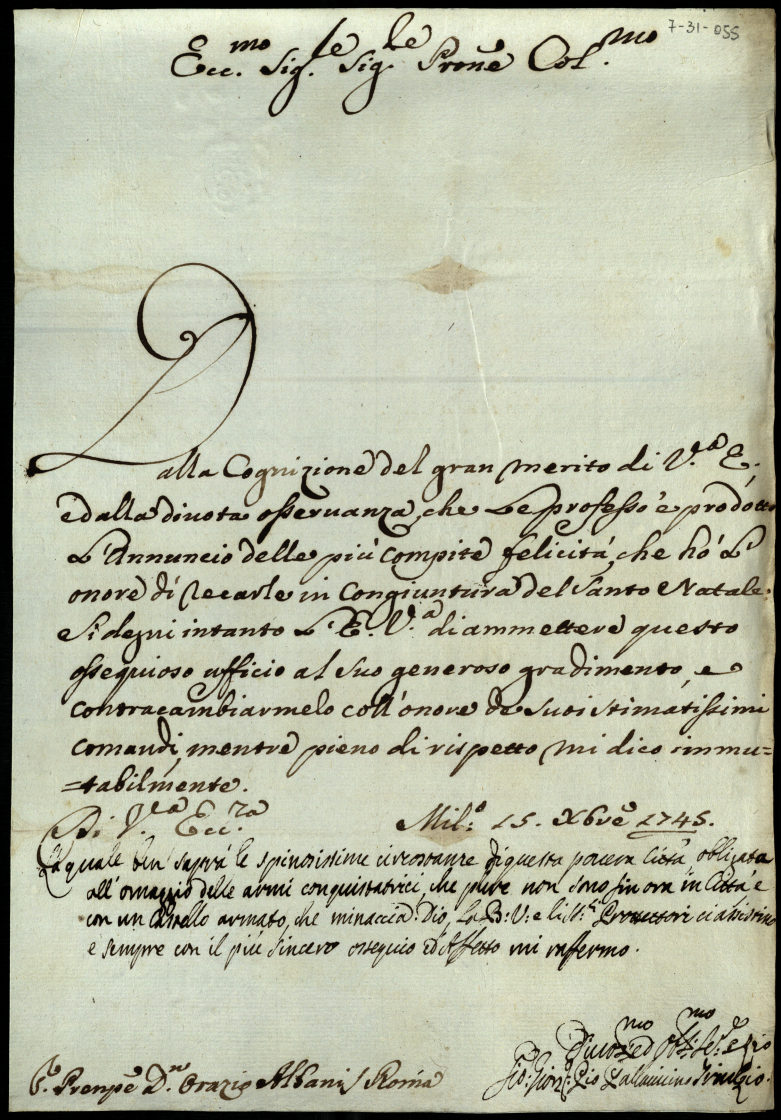 7-31-055
Ecc.mo Sig.re Sig.re Prone Col.mo
Dalla Cognizione del gran merito di V.a E.
ed alla divota osservanza, che Le professo è prodotto
L'Annuncio delle più compite felicità, che hò L'
onore di recarle in Congiuntura del Santo Natale.
Si degni intanto L'E. V.a di ammettere questo
ossequioso ufficio al suo generoso gradimento, e
contracambiarmelo coll'onore de suoi stimatissimi
comandi, mentre pieno di rispetto mi dico immu=
=tabilmente.
Di V.a Ecc.za Mil.o 15. Xbre 1745.
La quale ben saprà le spinosissime circostanze di questa povera Città obligata
all'omaggio delle armi conquistatrici, che pure non sono sin ora in Città e
con un Castello armato, che minaccia. Dio, La B: V: e li S.ti Protettori ci assistino
e sempre con il più sincero ossequio ed Affetto mi raffermo.
Divot.mo ed Obl.mo Ser.e e Zio
Gio: Pio Pallavicino Trivulzio
Prenpe D.n Orazio Albani Roma